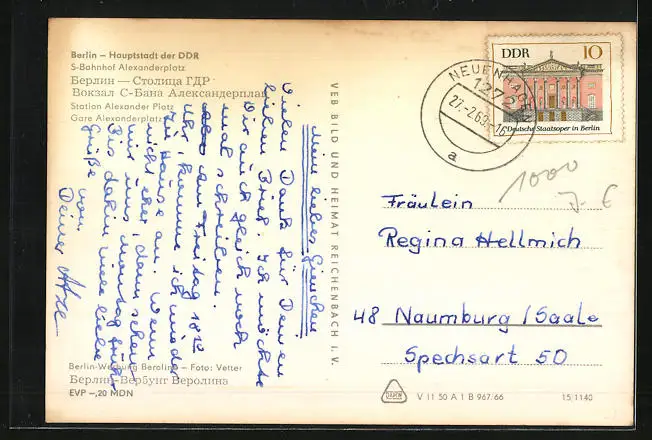 Berlin – Hauptstadt der DDR
S-Bahnhof Alexanderplatz
Берлин — Столица ГДР
Вокзал С-Бана Александерплац
Station Alexander Platz
Gare Alexanderplatz
Mein liebes Ginchen
Vielen Dank für Deinen
lieben Brief. Ich möchte
Dir auch gleich noch
mal schreiben.
Am Freitag 18 10
Uhr, komme ich wieder
zu Hause an. Wenn
nicht eher, dann sehen
wir uns Montag früh.
Bis dahin viele liebe
Grüße von
Deiner
Berlin-Werbung Berolina – Foto: Vetter
Берлин-Вербунг Веролина
EVP –,20 MDN
VEB BILD UND HEIMAT REICHENBACH i. V.
DDR 10
Deutsche Staatsoper in Berlin
NEUENHAGEN
1272
27.-2.69.-16
a
1000
7.- €
Fräulein
Regina Hellmich
48 Naumburg / Saale
Spechsart 50
V 11 50 A 1 B 967/66
15 1140